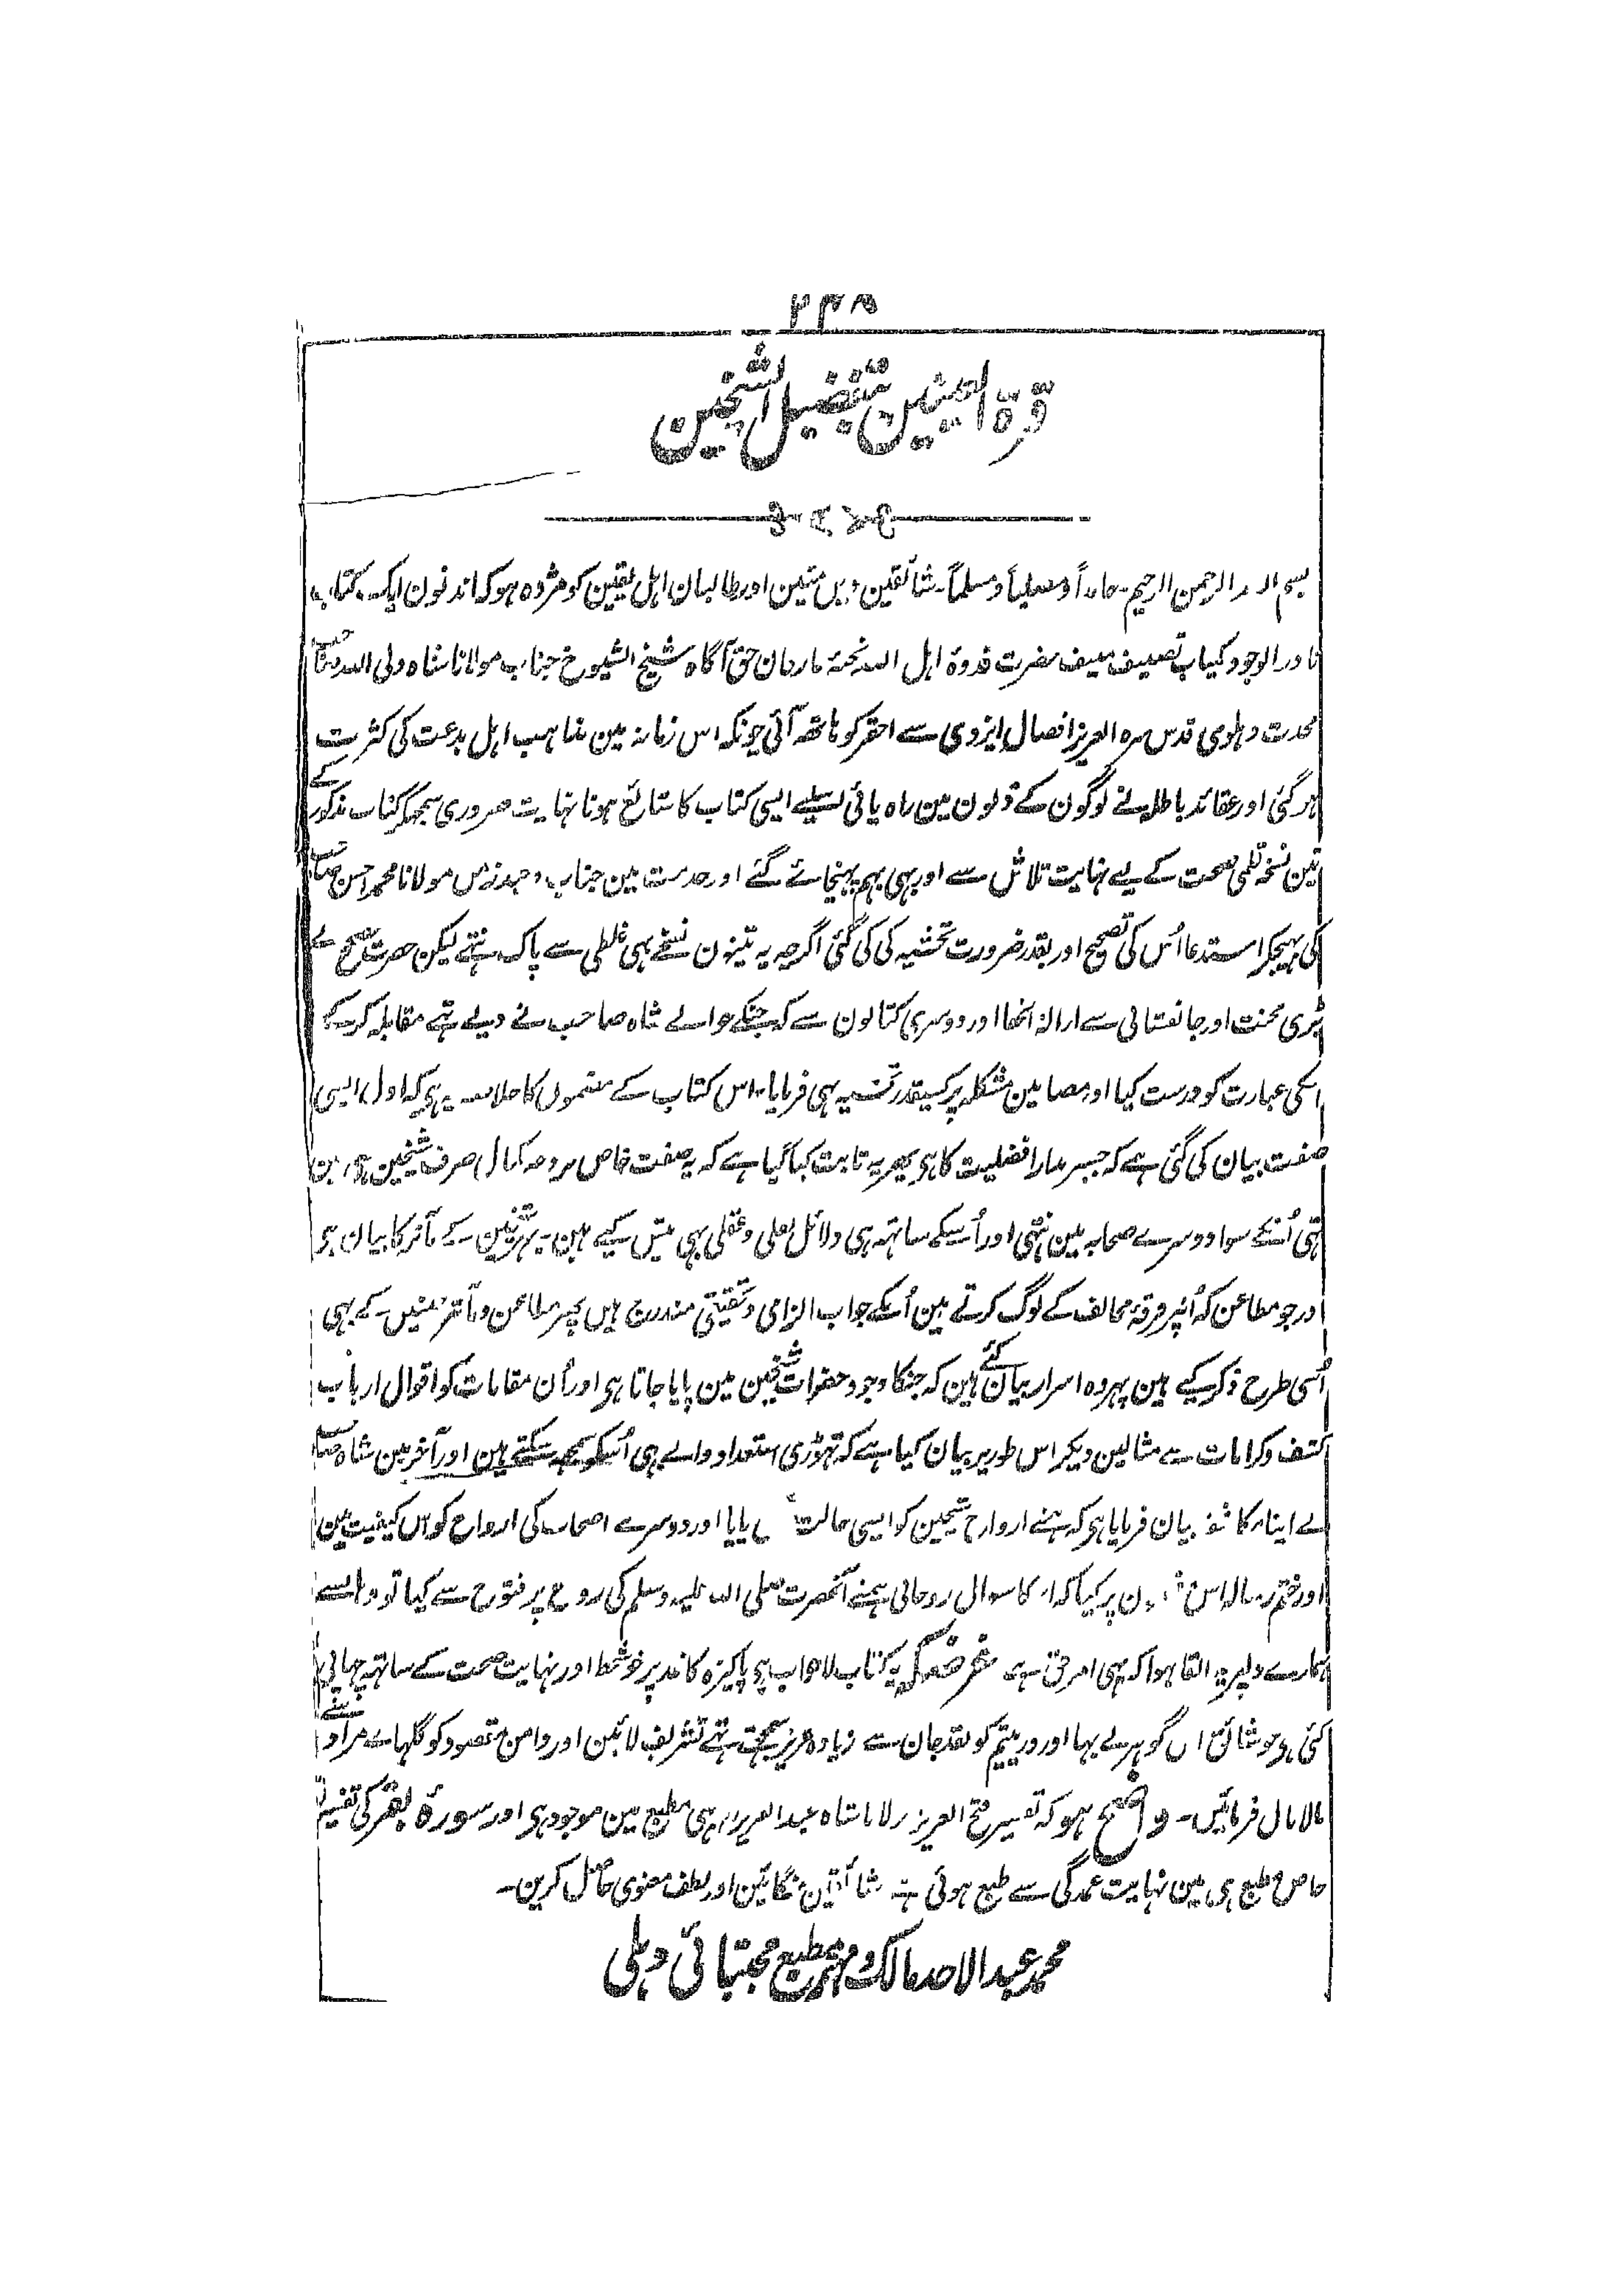 ۳۳۸
قرة العینین بتفضیل الشیخین
بسم اللہ الرحمن الرحیم۔ حامداً ومصلیاً ومسلماً۔ شائقین دین متین اور طالبان اہل یقین کو مژدہ ہو کہ اندنون ایک کتاب
نادر الوجود کمیاب تصنیف منیف حضرت قدوۃ اہل اللہ آگاہ شیخ الشیوخ جناب مولانا شاہ ولی اللہ صاحب
محدث دہلوی قدس سرہ العزیز افضال ایزدی سے احقر کو ہاتھ آئی چونکہ اس زمانہ مین مذاہب اہل بدعت کی کثرت
ہوگئی اور عقائد باطلہ نے لوگون کے دلون مین راہ پائی اسلیے ایسی کتاب کا شائع ہونا نہایت ضروری سمجھکر کتاب مذکور کے
تین نسخہ قلمی صحت کے لیے نہایت تلاش سے اور بہی بہم پہنچائے گئے اور خدمت مین جناب مولانا محمد احسن صاحب
کی بہیجکر استدعا اُس کی تصحیح اور بقدر ضرورت تحشیہ کی کی گئی اگرچہ یہ تینون نسخے بہی غلطی سے پاک نتہے لیکن حضرت مصحح نے
بڑی محنت اور جانفشانی سے ازالۃ الخفا اور دوسری کتابون سے کہ جنکے حوالے شاہ صاحب نے دیے تہے مقابلہ کرکے
اسکی عبارت کو درست کیا اور مضامین مشکلہ پر کسیقدر تحشیہ بہی فرمایا۔ اس کتاب کے مضمون کا خلاصہ یہ ہی کہ اول ایسی
صفت بیان کی گئی ہے کہ جسپر مدار افضلیت کا ہو پھر یہ ثابت کیا گیا ہے کہ یہ صفت خاص بروجہ کمال صرف شیخین ہی مین
تہی اُنکے سوا دوسرے صحابہ مین نتہی اور اُسیکے ساتہہ ہی دلائل نقلی وعقلی بہی پیش کیے ہین۔ پہر شیخین کے مآثر کا بیان ہی
اور جو مطاعن کہ اُنپر فرقۂ مخالف کے لوگ کرتے ہین اُنکے جواب الزامی وتحقیقی مندرج ہین پھر مطاعن ومآثر ختنین کے بہی
اُسی طرح ذکر کیے ہین پہر وہ اسرار بیان کئے ہین کہ جنکا وجود حضرات شیخین مین پایا جاتا ہی اور اُن مقامات کو اقوال ارباب
کشف وکرامات سے مثالین دیکر اس طور پر بیان کیا ہے کہ تہوڑی استعداد والے بہی اُسکو سمجہہ سکتے ہین اور آخر مین شاہ صاحب
نے اپنا مکاشفہ بیان فرمایا ہی کہ ہمنے ارواح شیخین کو ایسی حالت پایا اور دوسرے اصحاب کی ارواح کو اس کیفیت مین
اور ختم رسالہ اس پر کیا کہ سوال روحانی ہمنے آنحضرت صلی اللہ علیہ وسلم کی روح پر فتوح سے کیا تو وہانسے
ہمارے دلپر یہ القا ہوا کہ یہی امر حق ہے غرضکہ یہ کتاب لاجواب پاکیزہ کاغذ پر خوشخط اور نہایت صحت کے ساتہہ چہاپی
گئی جو شائق اس گوہر بے بہا اور در یتیم کو نقد جان سے زیادہ عزیز سمجہتے تہے تشریف لائین اور دامن مقصود کو گلہاے مراد سے
مالامال فرمائیں۔ واضح ہو کہ تفسیر فتح العزیز مولانا شاہ عبد العزیز بہی مطبع مین موجود ہی اور سورۂ بقر کی تفسیر
خاص مطبع ہی مین نہایت عمدگی سے طبع ہوئی ہے شائقین منگائین اور لطف معنوی حاصل کرین۔
محمد عبد الاحد مالک ومہتمم مطبع مجتبائی دہلی